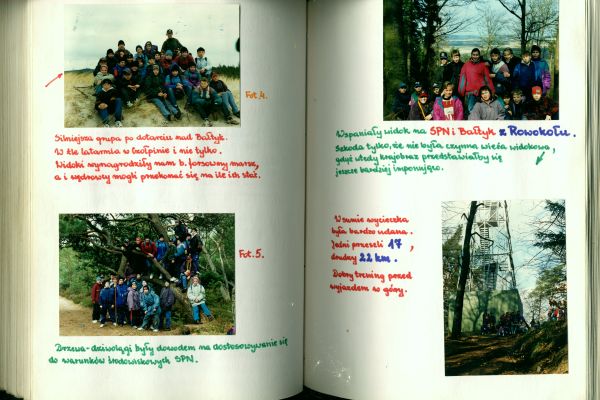 Fot. 4.
Silniejsza grupa po dotarciu nad Bałtyk.
W tle latarnia w Czołpinie i nie tylko.
Widoki wynagrodziły nam b. forsowny marsz,
a i wędrowcy mogli przekonać się na ile ich stać.
Fot. 5.
Drzewa-dziwolągi były dowodem na dostosowywanie się
do warunków środowiskowych SPN.
Wspaniały widok na SPN i Bałtyk z Rowokołu.
Szkoda tylko, że nie była czynna wieża widokowa,
gdyż wtedy krajobraz przedstawiałby się
jeszcze bardziej imponująco.
W sumie wycieczka
była bardzo udana.
Jedni przeszli 17,
drudzy 22 km.
Dobry trening przed
wyjazdem w góry.